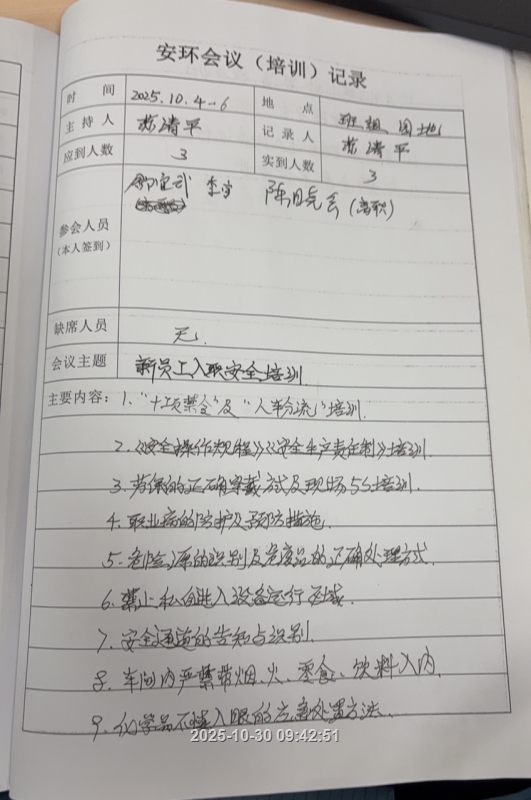 安环会议（培训）记录
时 间 2025.10.4-6 地 点 班组园地
主 持 人 苏清平 记 录 人 苏清平
应到人数 3 实到人数 3
参会人员 李 陈月亮 （离职）
（本人签到）
缺席人员 无.
会议主题 新员工入职安全培训
主要内容：1、“十项禁令”及“人车分流”培训.
2、《安全操作规程》《安全生产责任制》培训.
3、劳保的正确穿戴方式及现场5S培训.
4、职业病的防护及预防措施.
5、危险源的识别及危废品的正确处理方式.
6、禁止私自进入设备运行区域.
7、安全通道的告知与识别.
8、车间内严禁带烟、火、零食、饮料入内.
9、化学品不慎入眼的应急处置方法、
2025-10-30 09:42:51